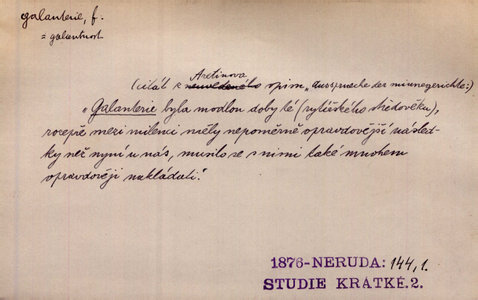 galanterie, f.
= galantnost
Aretinova
(citát z neuvedeného opisu „Aussprueche der minnegerichte:)
„Galanterie byla modlou doby té (rytířského středověku),
rozepře mezi milenci měly nepoměrně opravdovější násled-
ky než nyní u nás, musilo se s nimi také mnohem
opravdověji nakládati.“
1876-NERUDA: 144, 1.
STUDIE KRÁTKÉ. 2.